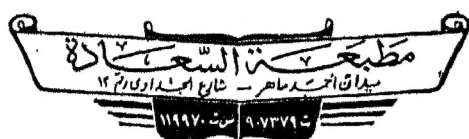 مطبعة السعادة
ميدان أحمد ماهر — شارع الجداوى رقم ١٢
ت ٩٠٧٣٧٩ س . ت ١١٩٩٧٠